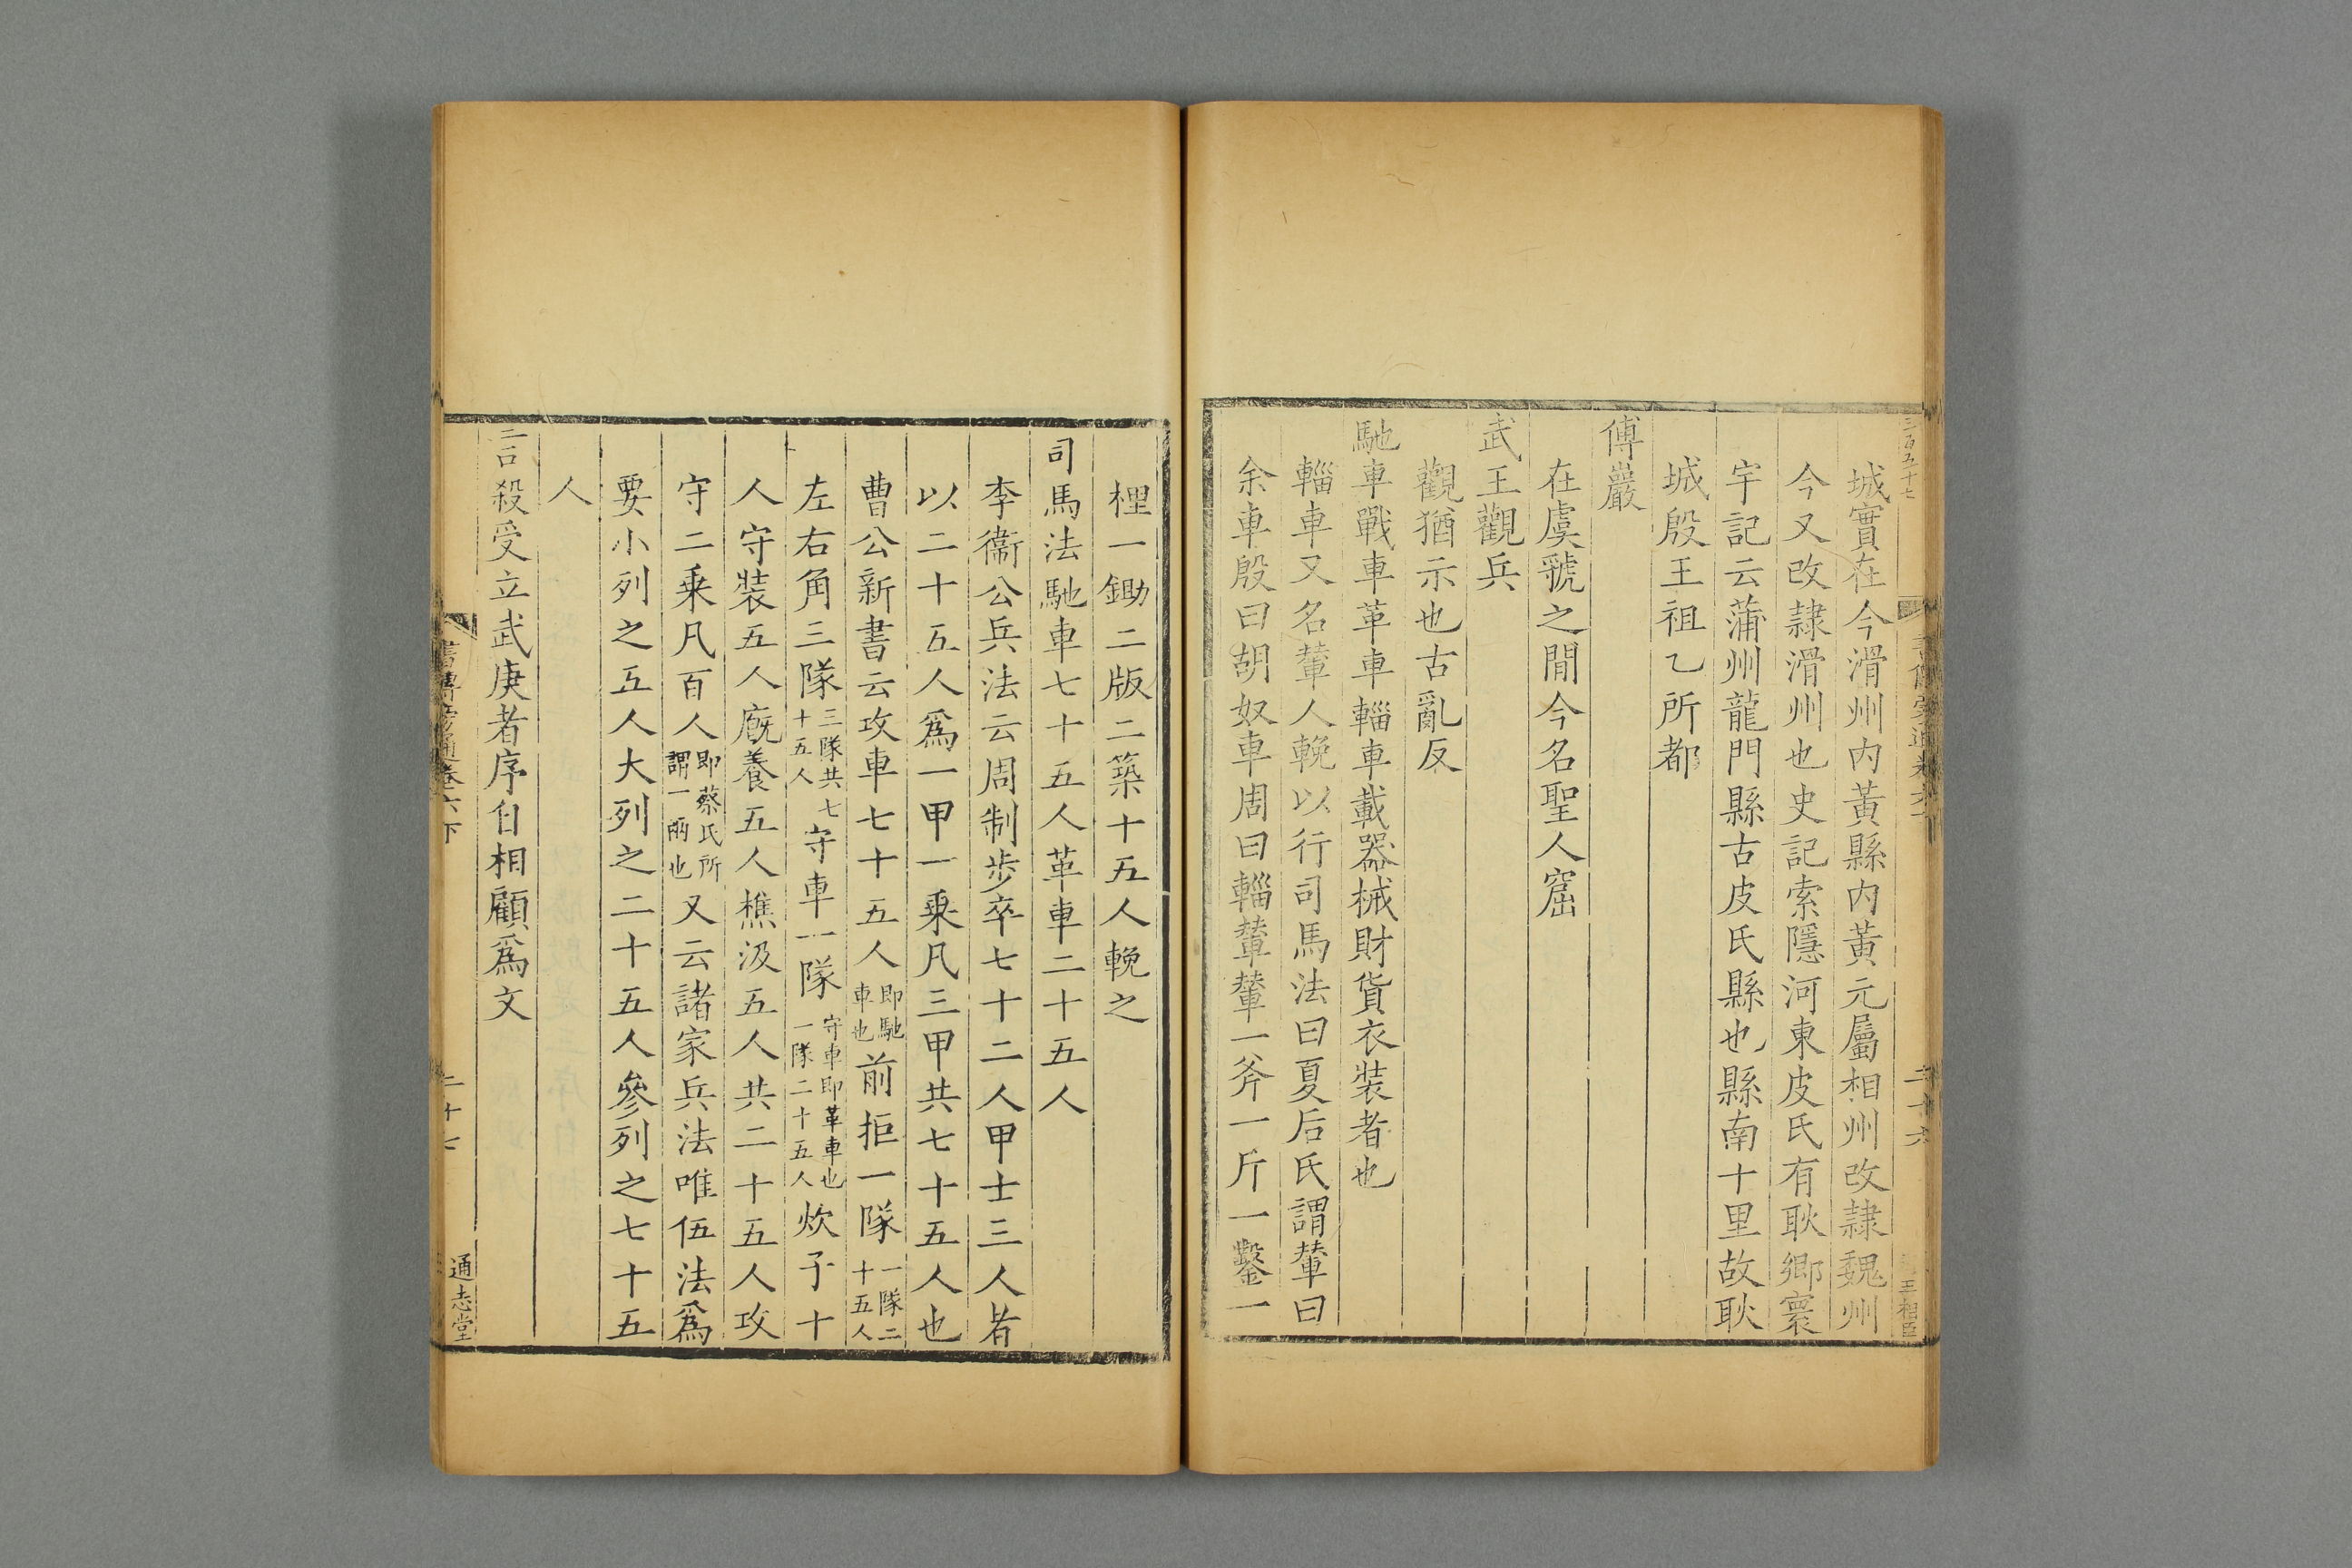 城實在今滑州内黃縣内黃元屬相州改隷魏州
今又改隷滑州也史記索隱河東皮氏有耿鄉寰
宇記云蒲州龍門縣古皮氏縣也縣南十里故耿
城殷王祖乙所都
傅巖
在虞虢之間今名聖人窟
武王觀兵
觀猶示也古亂反
馳車戰車革車輜車載器械財貨衣裝者也
輜車又名輦人輓以行司馬法曰夏后氏謂輦曰
余車殷曰胡奴車周曰輜輦輦一斧一斤一鑿一
梩一鋤二版二築十五人輓之
司馬法馳車七十五人革車二十五人
李衞公兵法云周制步卒七十二人甲士三人者
以二十五人爲一甲一乗凡三甲共七十五人也
曹公新書云攻車七十五人即馳車也前拒一隊一隊二十五人
左右角三隊三隊共七十五人守車一隊守車即革車也一隊二十五人炊子十
人守裝五人廐養五人樵汲五人共二十五人攻
守二乗凡百人即蔡氏所謂一兩也又云諸家兵法唯伍法爲
要小列之五人大列之二十五人參列之七十五
人
言殺受立武庚者序自相顧爲文
書傳旁通卷六下
二十七
通志堂
三百五十七
二十六
王相臣